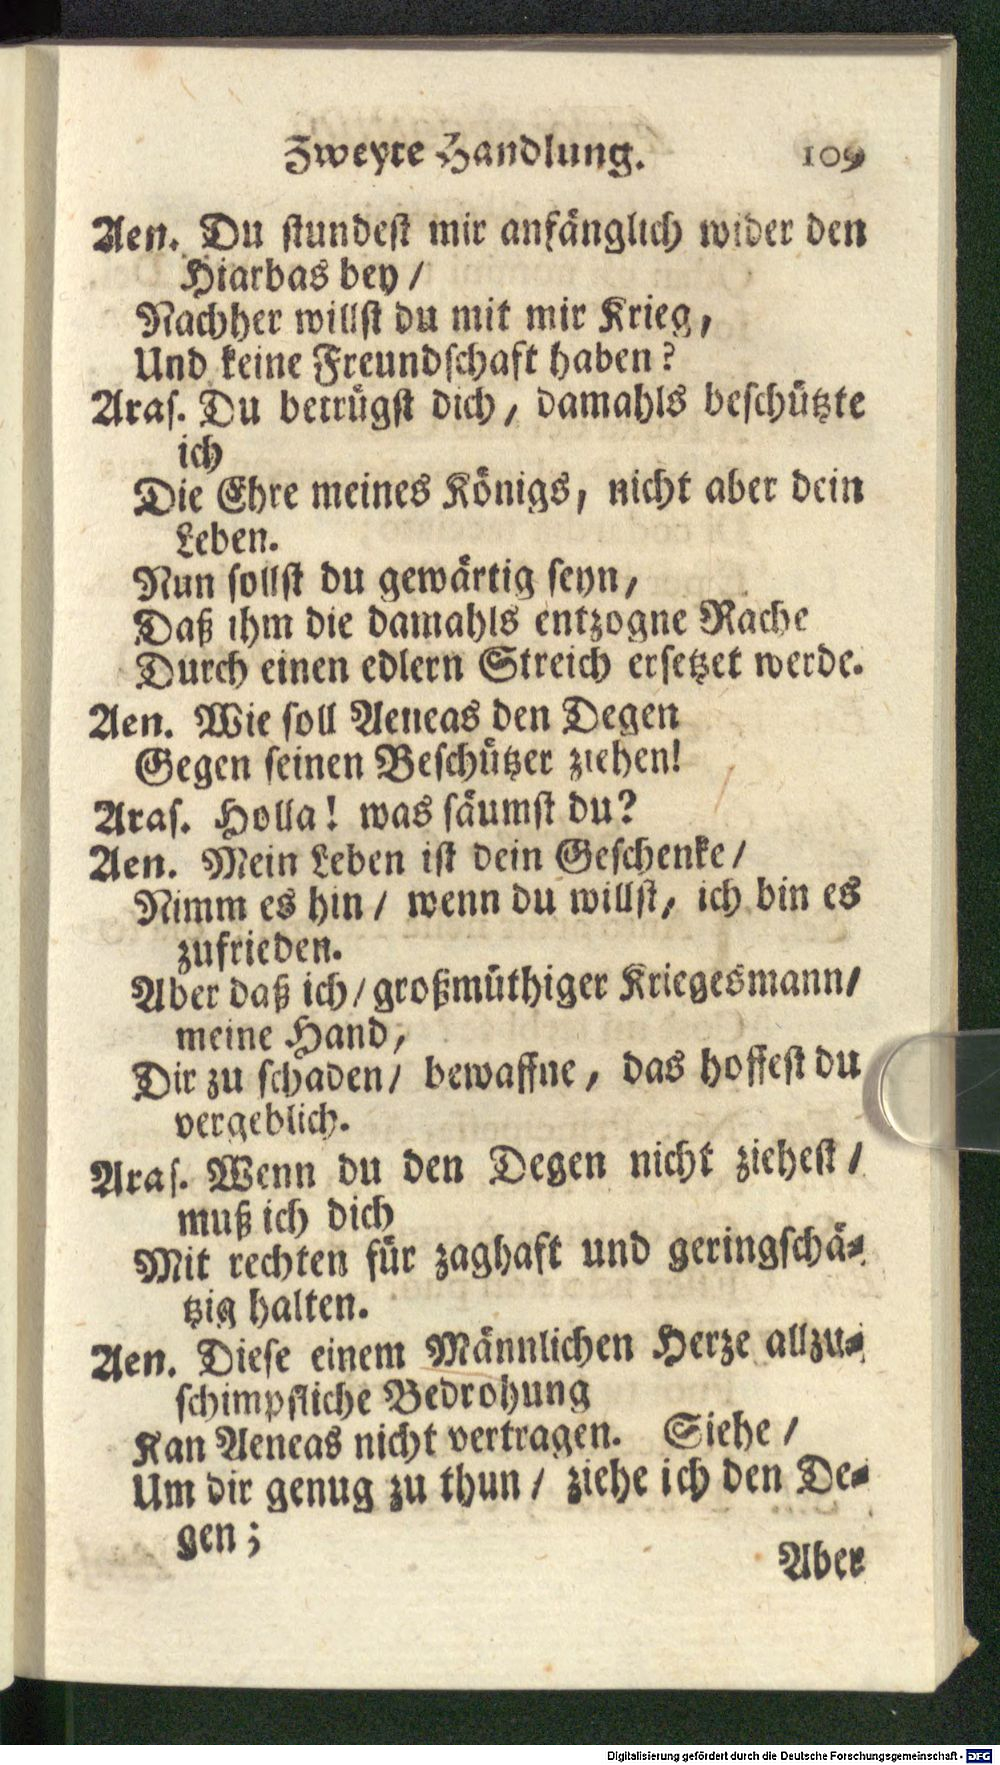 Zweyte Handlung. 109
Aen. Du stundest mir anfänglich wider den
Hiarbas bey /
Nachher willst du mit mir Krieg,
Und keine Freundschaft haben?
Aras. Du betrügst dich, damahls beschützte
ich
Die Ehre meines Königs, nicht aber dein
Leben.
Nun sollst du gewärtig seyn,
Daß ihm die damahls entzogne Rache
Durch einen edlern Streich ersetzet werde.
Aen. Wie soll Aeneas den Degen
Gegen seinen Beschützer ziehen!
Aras. Holla! was säumst du?
Aen. Mein Leben ist dein Geschenke /
Nimm es hin / wenn du willst, ich bin es
zufrieden.
Aber daß ich / großmüthiger Kriegesmann/
meine Hand,
Dir zu schaden / bewaffne, das hoffest du
vergeblich.
Aras. Wenn du den Degen nicht ziehest /
muß ich dich
Mit rechten für zaghaft und geringschä-
tzig halten.
Aen. Diese einem Männlichen Herze allzu-
schimpfliche Bedrohung
Kan Aeneas nicht vertragen. Siehe /
Um dir genug zu thun / ziehe ich den De-
gen;
Aber
Digitalisierung gefördert durch die Deutsche Forschungsgemeinschaft - DFG